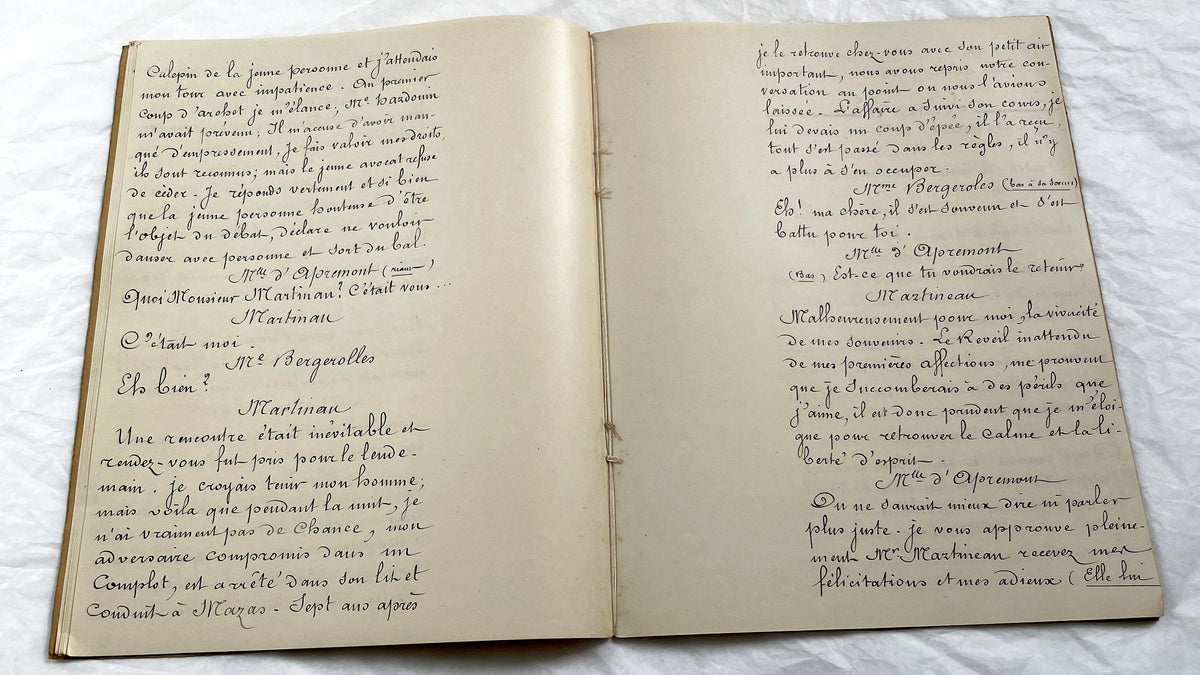 Calepin de la jeune personne et j'attendais
mon tour avec impatience. Au premier
coup d'archet je m'élance, Me Hardouin
m'avait prévenu; Il m'accuse d'avoir man-
qué d'empressement, Je fais valoir mes droits,
ils sont reconnus; mais le jeune avocat refuse
de céder. Je réponds vertement et si bien
que la jeune personne honteuse d'être
l'objet du débat, déclare ne vouloir
danser avec personne et sort du bal.
Mlle d'Apremont (riant)
Quoi Monsieur Martinau? C'était vous ...
Martinau
C'était moi.
Me Bergerolles
Eh bien?
Martinau
Une rencontre était inévitable et
rendez-vous fut pris pour le lende-
main. je croyais tenir mon homme;
mais voila que pendant la nuit, je
n'ai vraiment pas de Chance, mon
adversaire compromis dans un
Complot, est arrêté dans son lit et
Conduit à Mazas. Sept ans après
je le retrouve chez-vous avec son petit air
important, nous avons repris notre con-
versation au point ou nous l'avions
laissée. L'affaire a suivi son cours, je
lui devais un coup d'épée, il l'a reçu,
tout s'est passé dans les règles, il n'y
a plus à s'en occuper.
Mme Bergeroles (bas à sa sœur)
Eh! ma chère, il s'est souvenu et s'est
battu pour toi.
Mlle d'Apremont
(Bas) Est-ce que tu voudrais le retenir?
Martineau.
Malheureusement pour moi, la vivacité
de mes souvenirs. Le Reveil inattendu
de mes premières affections, me prouvent
que je Succomberais à des périls que
j'aime, il est donc prudent que je m'éloi-
gne pour retrouver le Calme et la li-
berté d'esprit.
Mlle d'Apremont
On ne saurait mieux dire ni parler
plus juste. je vous approuve pleine-
ment Mr Martineau recevez mes
félicitations et mes adieux (Elle lui